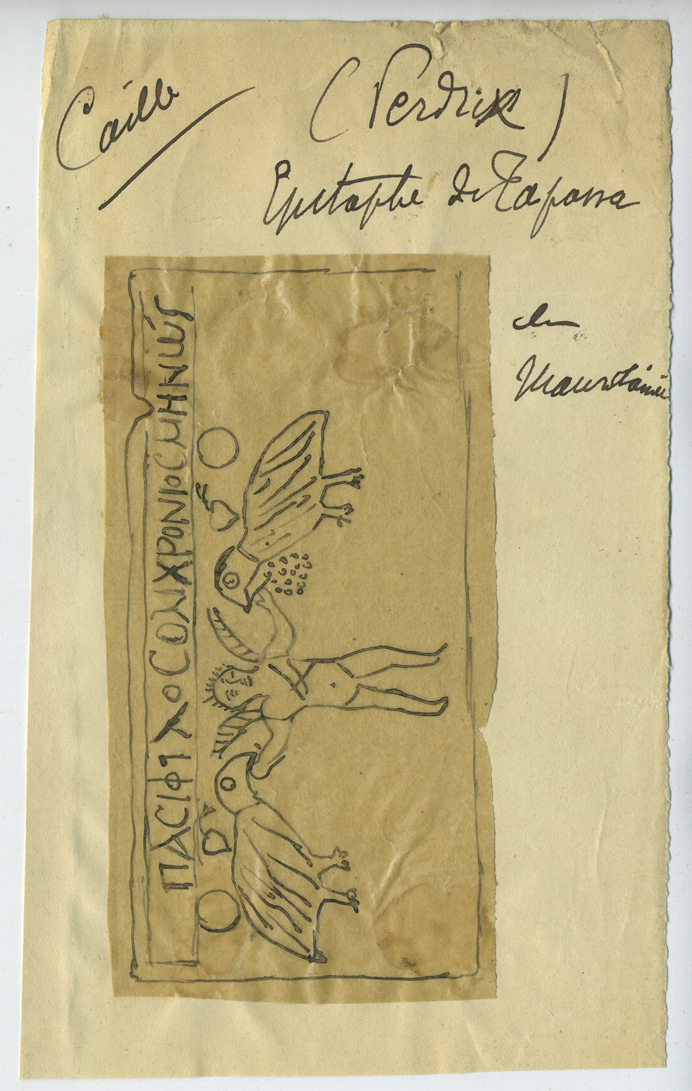 Caille
(Perdrix)
Epitaphe de Tapassa
en
Mauritanie
ΠΑCΙΦΙΛΟCΟΝΧΡΟΝΙΟCΜΗΝΙΩΝ